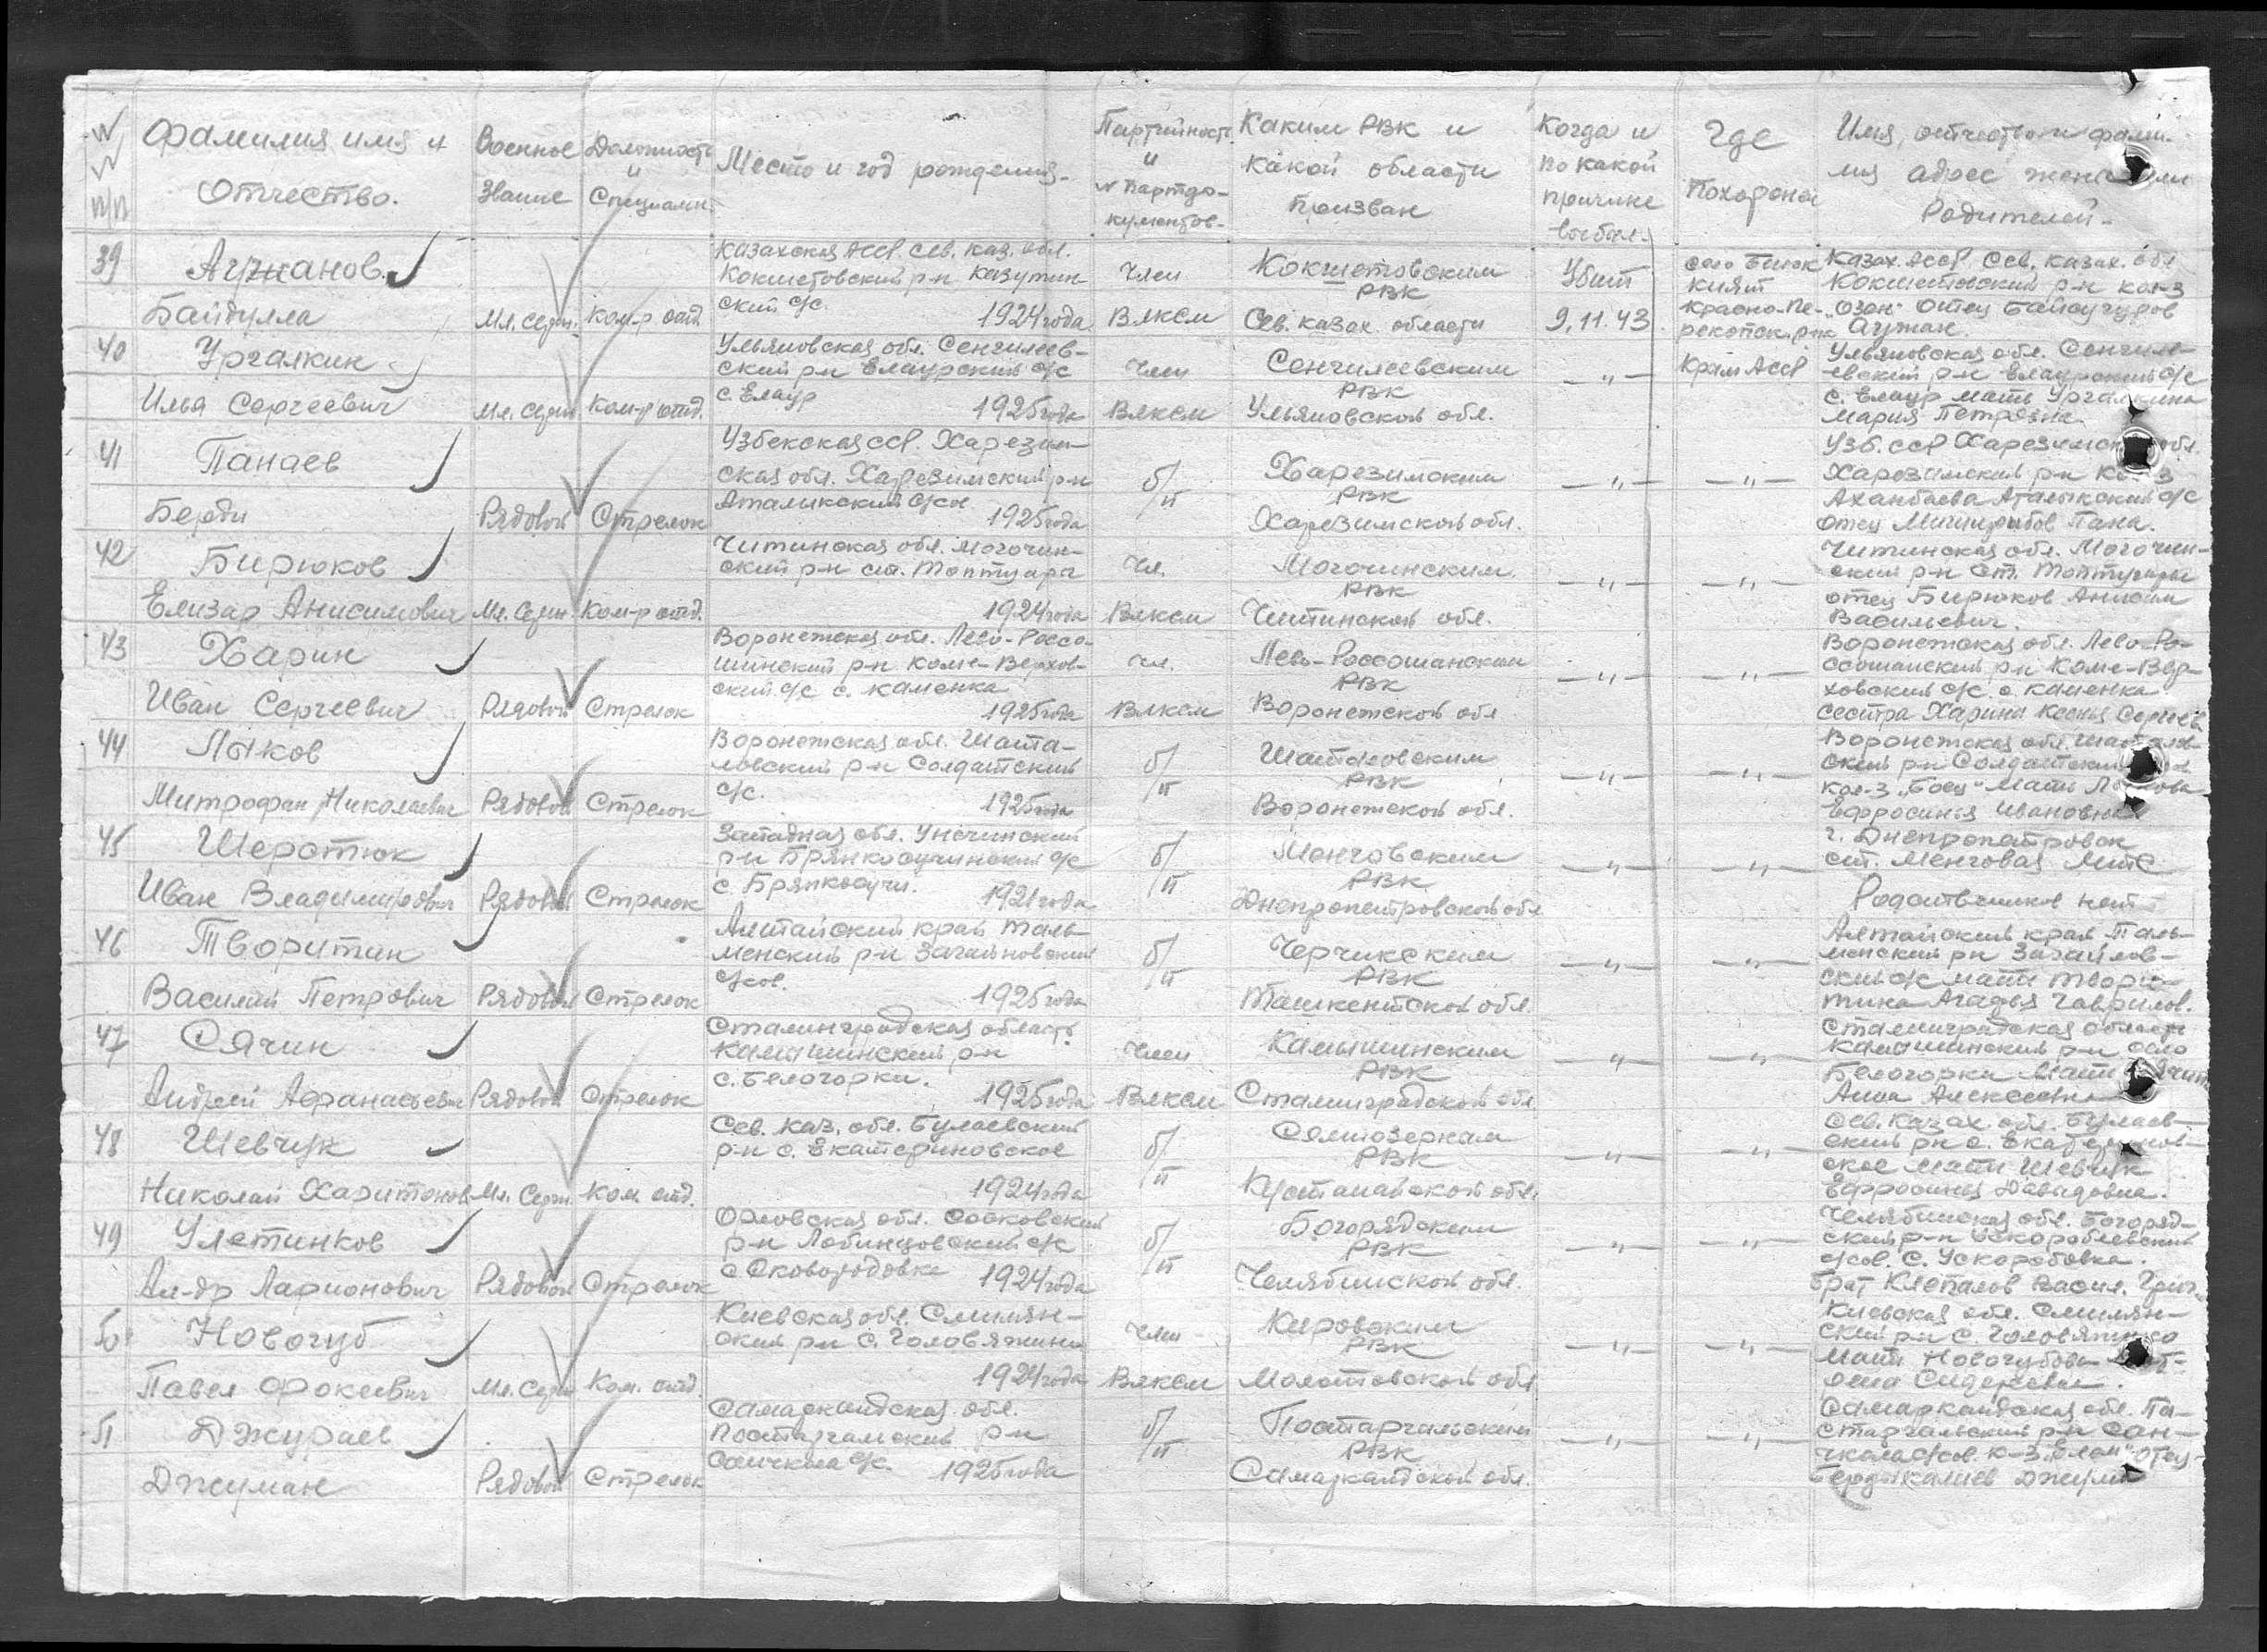 №№ п/п Фамилия имя и Отчество. Военное Звание Должность и Специальн. Место и год рождения. Партийность и № партдокументов. Каким РВК и какой области Призван Когда и по какой причине выбыл. Где Похоронен Имя, отчество и фамилия адрес жены или Родителей.
39 Агужанов Байдулла Мл. Серж. Ком-р отд. Казахская АССР. Сев. Каз. обл. Кокчетовский р-н с/с. 1924 года Член ВЛКСМ Кокчетовским РВК Сев. Казах. области Убит 9.11.43. село Биюк Кият Красно-Перекопск. р-на Крым АССР Казах. АССР Сев. Казах. обл Кокчетовский р-н кол-з отец
40 Ургалкин Илья Сергеевич Мл. Серж. Ком-р отд. Ульяновская обл. Сенгилеевский р-н Елаурский с/с с. Елаур 1925 года Член ВЛКСМ Сенгилеевским РВК Ульяновской обл. —„— Ульяновская обл. Сенгилеевский р-н Елаурский с/с с. Елаур мать Ургалкина Мария Петровна
41 Панаев Берди Рядовой Стрелок Узбекская ССР. Харезимская обл. Харезимский р-н Аталикский с/сов 1925 года б/п Харезимским РВК Харезимской обл. —„— —„— Узб. ССР Харезимск обл. Харезимский р-н Кол-з Аханбаева Аталыкский с/с отец Пана.
42 Бирюков Елизар Анисимович Мл. Серж. Ком-р отд. Читинская обл. Могочинский р-н ст. 1924 года Чл. ВЛКСМ Могочинским РВК Читинской обл. —„— —„— Читинская обл. Могочинский р-н ст. отец Бирюков Анисим Васильевич.
43 Харин Иван Сергеевич Рядовой Стрелок Воронежская обл. Лево-Россошинский р-н Каме-Верховский с/с с. Каменка 1925 года Чл. ВЛКСМ Лево-Россошанским РВК Воронежской обл —„— —„— Воронежская обл. Лево-Россошанский р-н Каме-Верховский с/с с. Каменка сестра Харина Ксенья Сергеев
44 Лыков Митрофан Николаевич Рядовой Стрелок Воронежская обл. Шаталовский р-н Солдатский с/с. 1925 года б/п Шаталовским РВК Воронежской обл. —„— —„— Воронежская обл. Шаталовский р-н Солдатский кол-з „Боец" Мать Ефросинья Ивановна
45 Шеротюк Иван Владимирович Рядовой Стрелок Западная обл. Унечинский р-н с/с с. 1921 года б/п Менговским РВК Днепропетровской обл —„— —„— г. Днепропетровск ст. Менговая Родственников нет
46 Творитин Василий Петрович Рядовой Стрелок Алтайский край Тальменский р-н Загайновский с/сов. 1925 года б/п Чирчикским РВК Ташкентской обл. —„— —„— Алтайский край Тальменский р-н с/с мать Творитина Агадья Гаврилов.
47 Сячин Андрей Афанасьевич Рядовой Стрелок Сталинградская область Камышинский р-н с. Белогорки. 1925 года Член ВЛКСМ Камышинским РВК Сталинградской обл —„— —„— Сталинградская область Камышинский р-н село Белогорки Мать Анна Алексеевна
48 Шевчук Николай Харитонов. Мл. Серж. Ком. отд. Сев. Каз. обл. Булаевский р-н с. Екатериновское 1924 года б/п Семиозерным РВК Кустанайской обл. —„— —„— Сев. Казах. обл. Булаевский р-н с. Екатериновское мать Шевчук Ефросинья Давыдовна.
49 Улетинков Ал-др Ларионович Рядовой Стрелок Орловская обл. р-н Лобинцовский с/с с Сковородовка 1924 года б/п Богорядским РВК Челябинской обл. —„— —„— Челябинская обл. Богорядский р-н с/сов. С. Ускоробовка. брат Клепалов Васил. Григ.
50 Новогуб Павел Фокеевич Мл. Серж Ком. отд. Киевская обл. Смилянский р-н с. Головятино 1924 года Член ВЛКСМ Кировским РВК Молотовской обл —„— —„— Киевская обл. Смилянский р-н с. Головятино мать Новогубова
51 Джураев Джуман Рядовой Стрелок Самаркандская обл. Постаргамский р-н с/с. 1925 года б/п Постаргальским РВК Самаркандской обл. —„— —„— Самаркандская обл. Пастаргальский р-н с/сов. к-з отец Джума